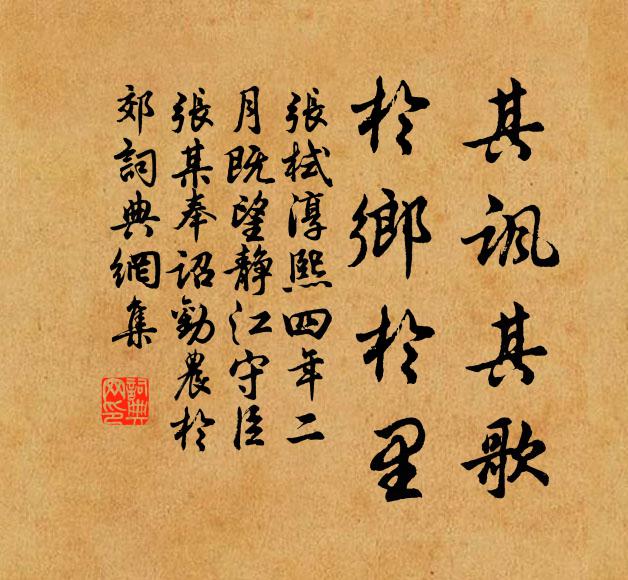 其諷其歌
於鄉於里
張栻淳熙四年二
月既望靜江守臣
張某奉詔勸農於
郊詞典網集
詞典
网印